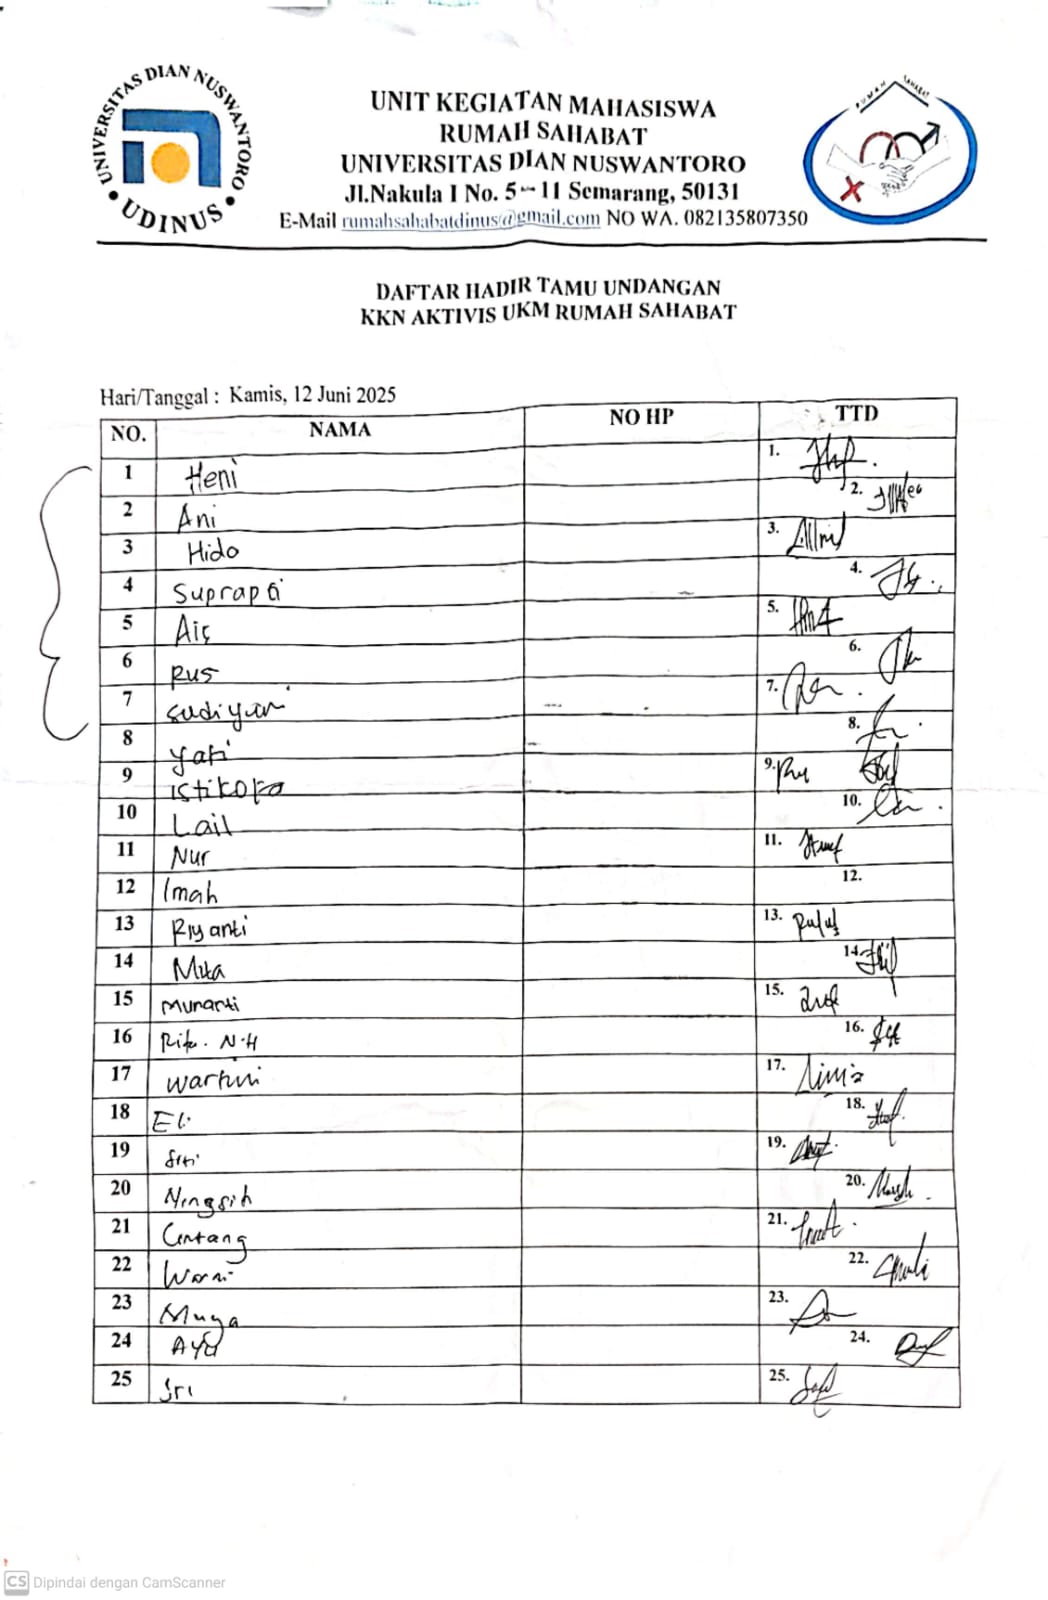 UNIVERSITAS DIAN NUSWANTORO
UDINUS
RUMAH SAHABAT
UNIT KEGIATAN MAHASISWA
RUMAH SAHABAT
UNIVERSITAS DIAN NUSWANTORO
Jl.Nakula I No. 5 - 11 Semarang, 50131
E-Mail rumahsahabatdinus@gmail.com NO WA. 082135807350
DAFTAR HADIR TAMU UNDANGAN
KKN AKTIVIS UKM RUMAH SAHABAT
Hari/Tanggal : Kamis, 12 Juni 2025
NO. NAMA NO HP TTD
1 Heni 1.
2 Ani 2.
3 Hido 3.
4 Suprapti 4.
5 Ais 5.
6 Rus 6.
7 7.
8 Yati 8.
9 9.
10 Lail 10.
11 Nur 11.
12 Imah 12.
13 Riyanti 13.
14 14.
15 Munarti 15.
16 N.H 16.
17 17.
18 18.
19 Siti 19.
20 Ningsih 20.
21 21.
22 22.
23 23.
24 Ayu 24.
25 Sri 25.
CS Dipindai dengan CamScanner